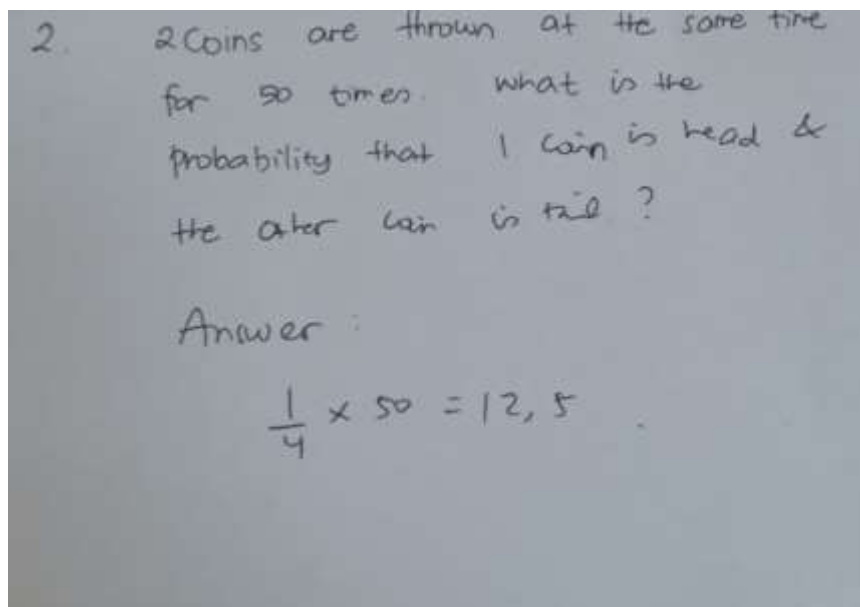 2. 2 Coins are thrown at the same time
for 50 times. What is the
probability that 1 coin is head &
the other coin is tail ?
Answer :
1/4 x 50 = 12,5